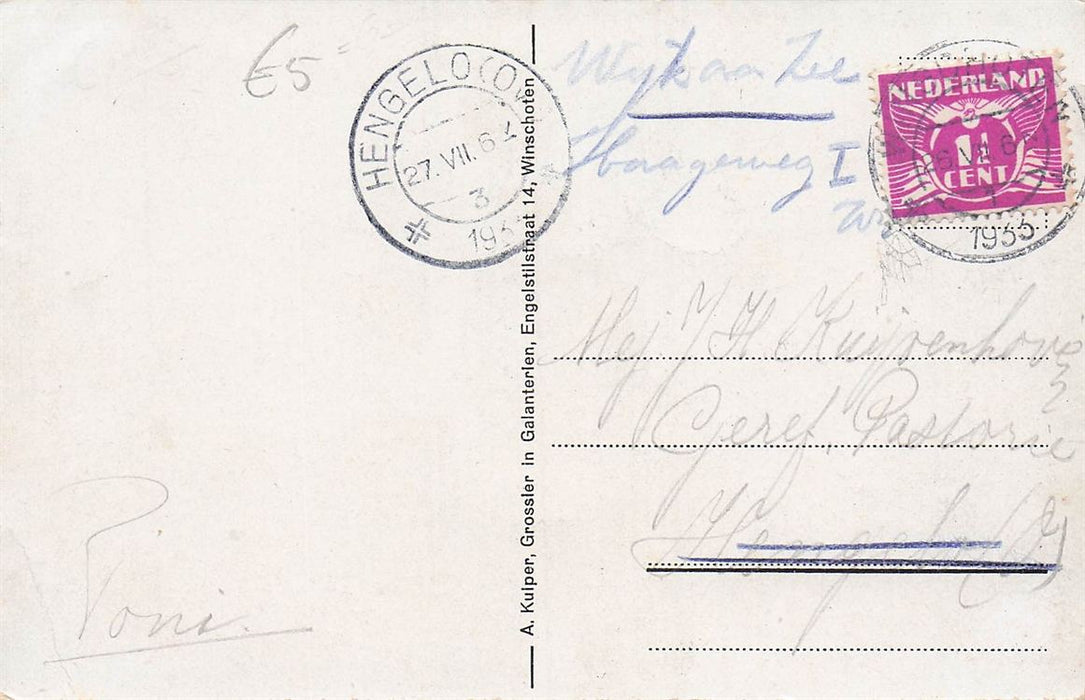 €5
HENGELO (O)
27.VII.6
3
193
A. Kuiper, Grossier in Galanteriën, Engelstilstraat 14, Winschoten
Wijk aan Zee
I
NEDERLAND
1½
CENT
26.VII.6
1935
Mej. J H Kuijvenhoven
Geref. Pastorie
Hengelo (O)
Toni.